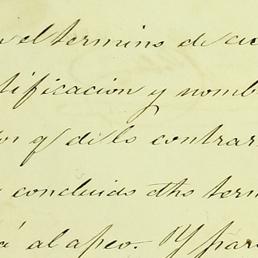 el termino de
tificacion y nomb
or q/ de lo contrar
concluido dhos ter
á al apeo. Y para